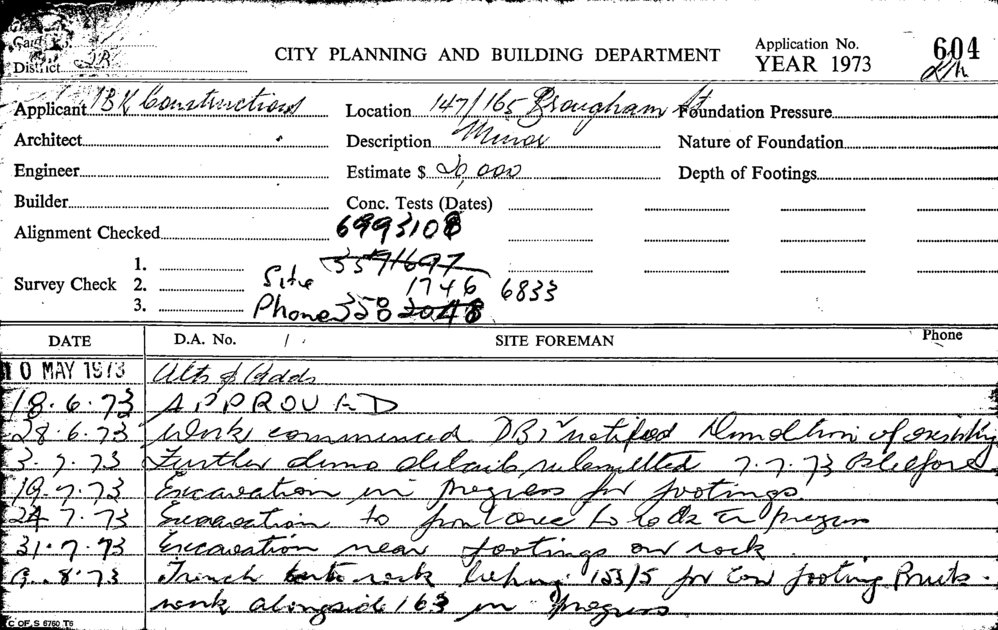 Card
District DB
CITY PLANNING AND BUILDING DEPARTMENT
Application No. 604
YEAR 1973
Applicant IBK Constructions Location 147/165 Brougham St Foundation Pressure
Architect Description Minor Nature of Foundation
Engineer Estimate $ 20,000 Depth of Footings
Builder Conc. Tests (Dates)
Alignment Checked 6993108
1. 3391697
Survey Check 2. Site 1746 6833
3. Phone 358 2048
DATE D.A. No. SITE FOREMAN Phone
10 MAY 1973 Alts & Adds
18.6.73 APPROVED
28.6.73 Work commenced DBS notified Demolition of existing
3.7.73 Further demo details submitted 7.7.73
19.7.73 Excavation in progress for footings
24.7.73 Excavation to to rock in progress
31.7.73 Excavation near footings on rock
9.8.73 Trench rock 153/5 for footing
work alongside 163 in progress
C OF S 6760 T6